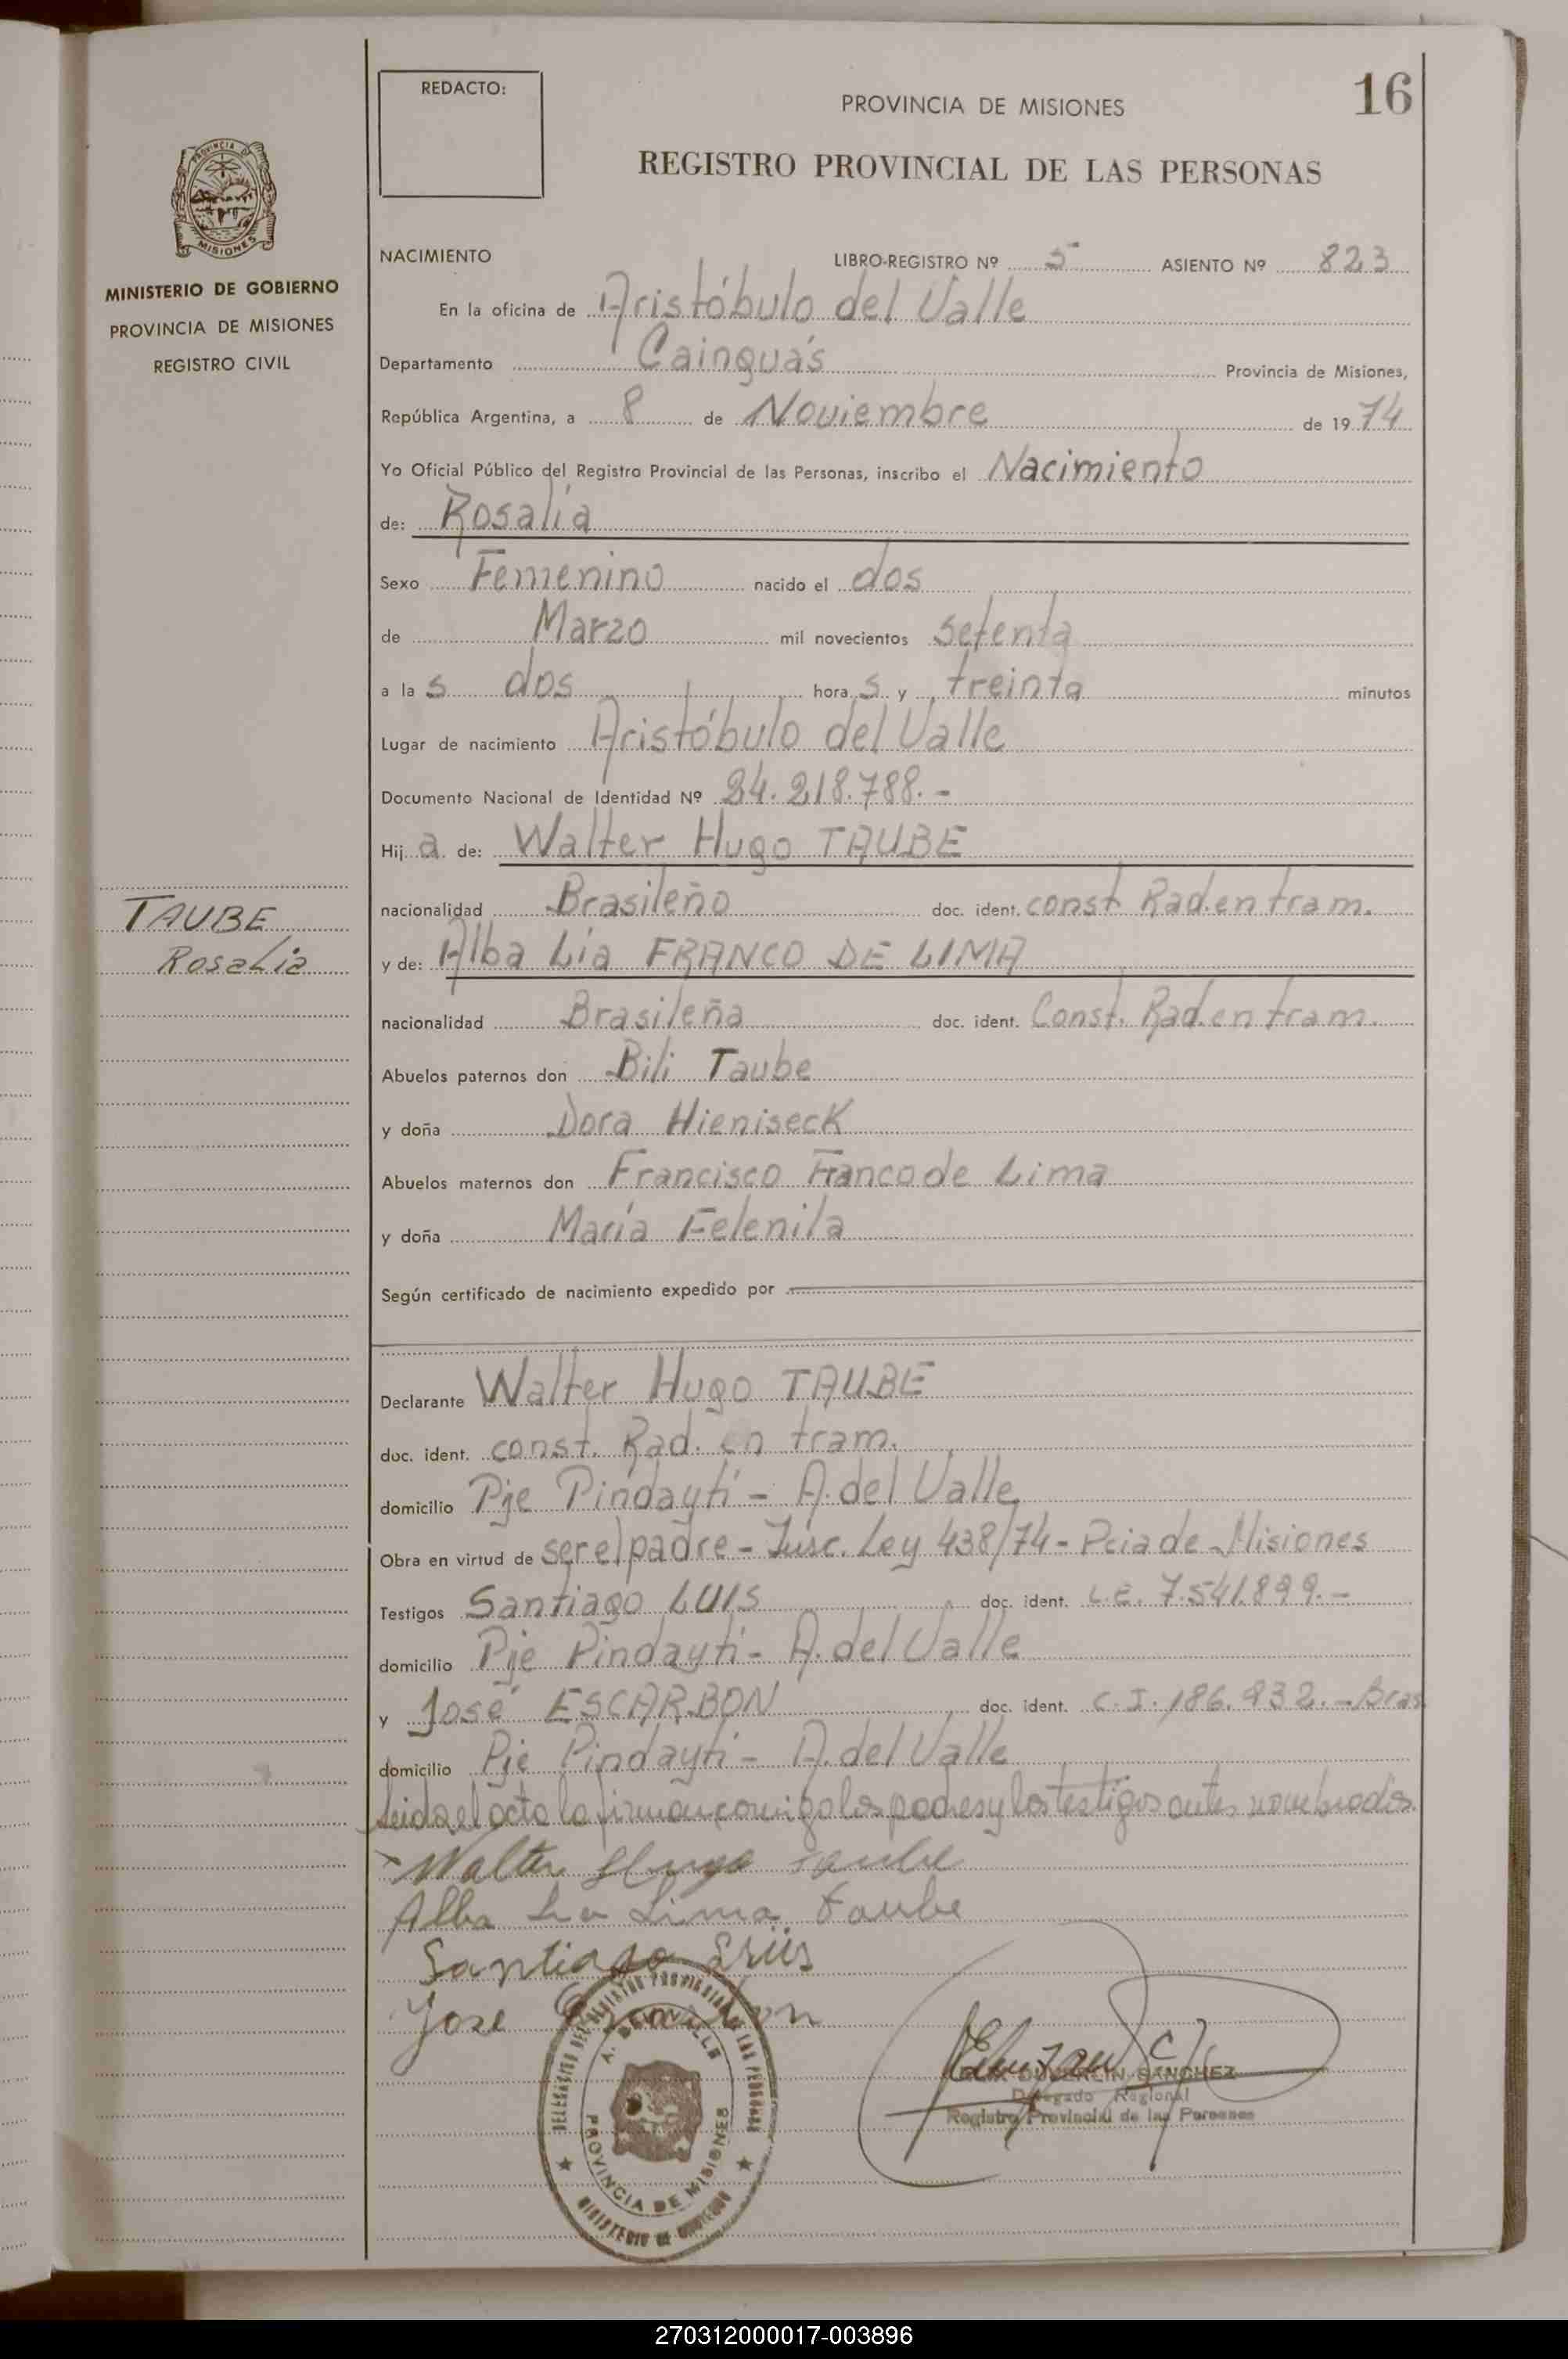 REDACTO:
16
PROVINCIA DE MISIONES
REGISTRO PROVINCIAL DE LAS PERSONAS
PROVINCIA D
MISIONES
MINISTERIO DE GOBIERNO
PROVINCIA DE MISIONES
REGISTRO CIVIL
NACIMIENTO LIBRO-REGISTRO Nº 5 ASIENTO Nº 823
En la oficina de Aristóbulo del Valle
Departamento Cainguás Provincia de Misiones,
República Argentina, a 8 de Noviembre de 1974
Yo Oficial Público del Registro Provincial de las Personas, inscribo el Nacimiento
de: Rosalía
Sexo Femenino nacido el dos
de Marzo mil novecientos setenta
a la s dos hora s y treinta minutos
Lugar de nacimiento Aristóbulo del Valle
Documento Nacional de Identidad Nº 24.218.788.-
Hij a de: Walter Hugo TAUBE
nacionalidad Brasileño doc. ident. const. Rad. en tram.
TAUBE
Rosalia
y de: Alba Lía FRANCO DE LIMA
nacionalidad Brasileña doc. ident. Const. Rad. en tram.
Abuelos paternos don Bili Taube
y doña Dora Hieniseck
Abuelos maternos don Francisco Franco de Lima
y doña María Felenila
Según certificado de nacimiento expedido por
Declarante Walter Hugo TAUBE
doc. ident. const. Rad. en tram.
domicilio Pje Pindaytí - A. del Valle
Obra en virtud de ser el padre - Insc. Ley 438/74 - Pcia de Misiones
Testigos Santiago LUIS doc. ident. L.E. 7.541.899.-
domicilio Pje Pindaytí - A. del Valle
y José ESCARBON doc. ident. C.I. 186.932.- Bras.
domicilio Pje Pindaytí - A. del Valle
Leida el acta la firman conmigo los padres y los testigos antes nombrados.
Walter Hugo Taube
Alba Lia Lima Taube
Santiago
Jose
A. DEL VALLE
PROVINCIA DE MISIONES
MINISTERIO DE GOBIERNO
SANCHEZ
Delegado Regional
Registro Provincial de las Personas
270312000017-003896